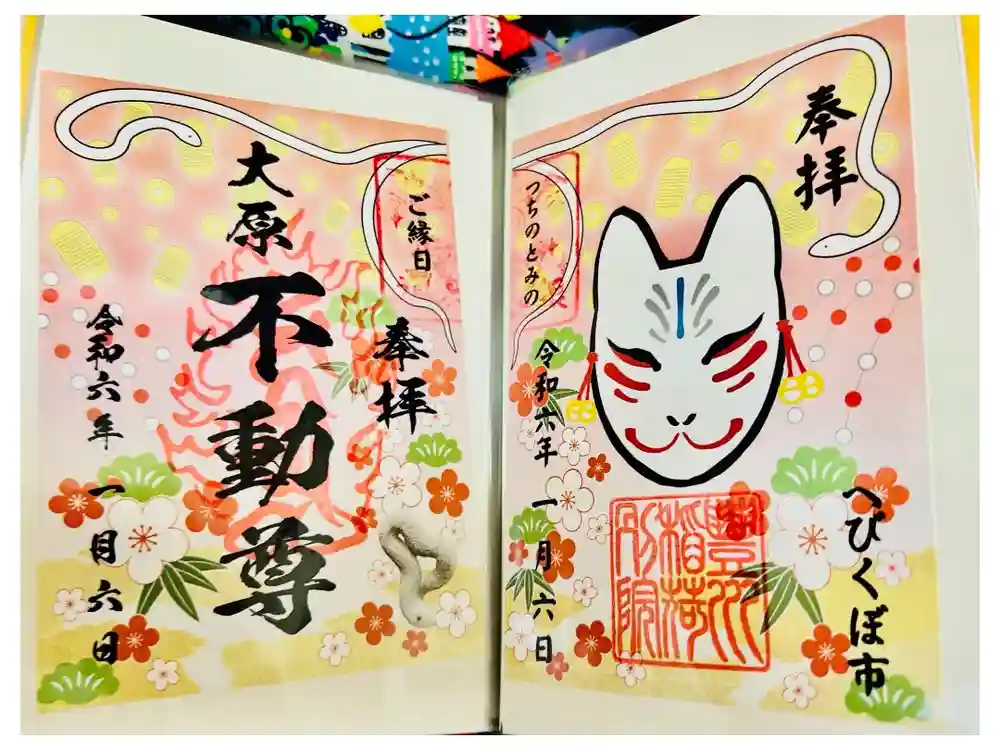 奉拝
つちのとみの
ご縁日
令和六年 一月六日
へびくぼ市
豊川稲荷別院
大原
不動尊
奉拝
令和六年 一月六日